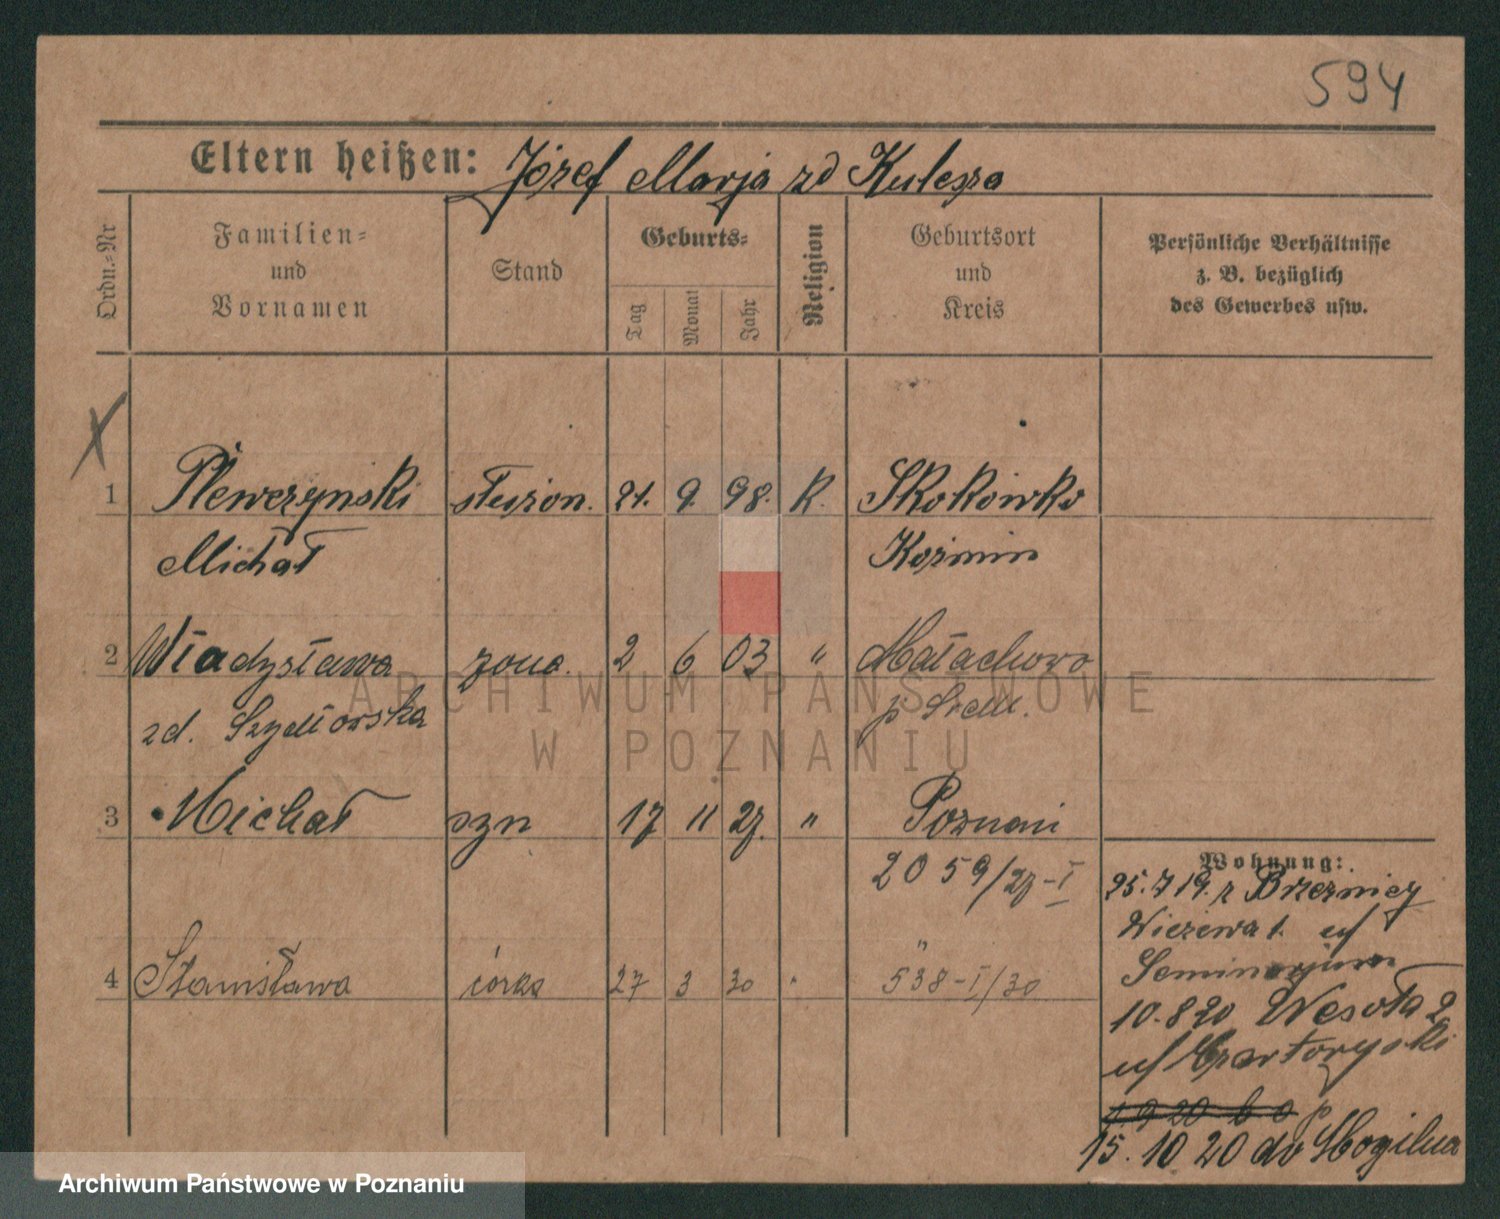 594
Eltern heißen: Józef Marja zd Kulesza
Ordn.-Nr
Familien-
und
Vornamen
Stand
Geburts-
Tag
Monat
Jahr
Religion
Geburtsort
und
Kreis
Persönliche Verhältnisse
z. B. bezüglich
des Gewerbes usw.
1 Plewczynski 21. 9. 98. K. Skokówko
Michał Kozmin
2 Władysława żona. 2 6 03 " Małachowo
zd. Szydłowska p Srem.
3 Michał syn 17 11 27. " Poznań
2059/27-I
4 Stanisława córka 27 3 30 "
538-I/30
Wohnung:
25.7 19. z Brzeznicy
u/
Seminarjum
10.8 20 Wesoła 2
u/ Czartoryski
1.9 20
15.10 20 do Mogilna
ARCHIWUM PAŃSTWOWE
W POZNANIU
Archiwum Państwowe w Poznaniu